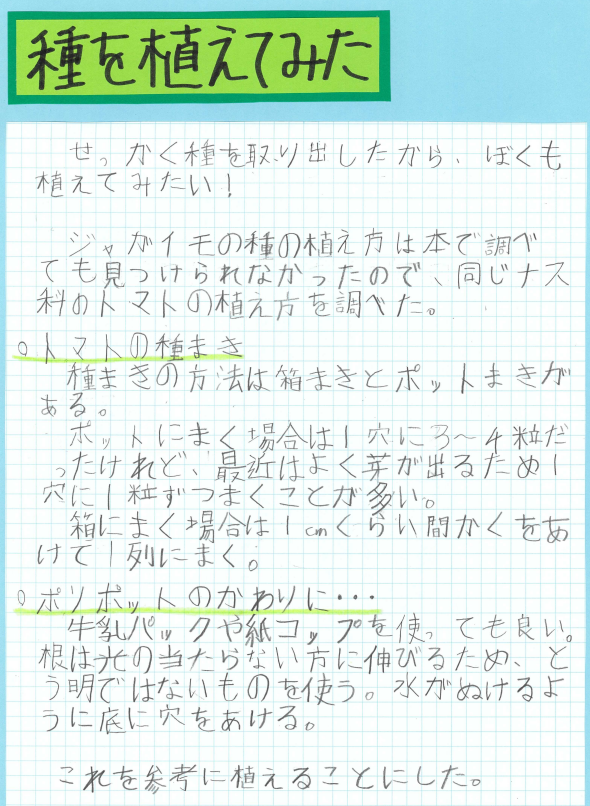 種を植えてみた
せっかく種を取り出したから、ぼくも
植えてみたい！
ジャガイモの種の植え方は本で調べ
ても見つけられなかったので、同じナス
科のトマトの植え方を調べた。
○トマトの種まき
種まきの方法は箱まきとポットまきが
ある。
ポットにまく場合は1穴に3〜4粒だ
ったけれど、最近はよく芽が出るため1
穴に1粒ずつまくことが多い。
箱にまく場合は1cmくらい間かくをあ
けて1列にまく。
○ポリポットのかわりに・・・
牛乳パックや紙コップを使っても良い。
根は光の当たらない方に伸びるため、と
う明ではないものを使う。水がぬけるよ
うに底に穴をあける。
これを参考に植えることにした。